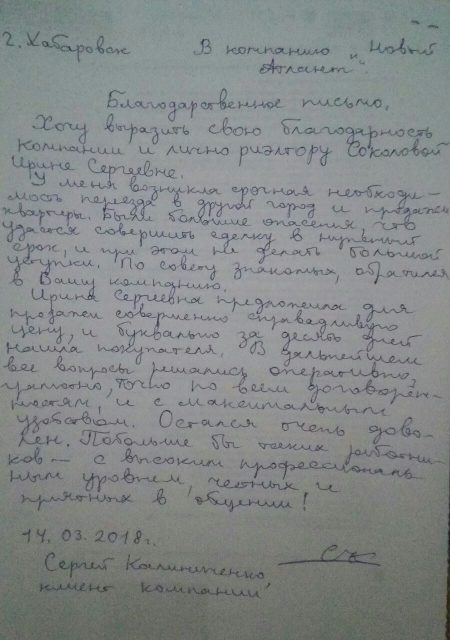 г. Хабаровск В компанию "Новый
Атлант".
Благодарственное письмо.
Хочу выразить свою благодарность
компании и лично риэлтору Соколовой
Ирине Сергеевне.
У меня возникла срочная необходи-
мость переезда в другой город и продажи
квартиры. Были большие опасения, что
удастся совершить сделку в нужный
срок, и при этом не делать большой
уступки. По совету знакомых, обратился
в Вашу компанию.
Ирина Сергеевна предложила для
продажи совершенно справедливую
цену, и буквально за десять дней
нашла покупателя. В дальнейшем
все вопросы решались оперативно,
точно по всем договорен-
ностям, и с максимальным
удобством. Остался очень дово-
лен. Побольше бы таких работни-
ков – с высоким профессиональ-
ным уровнем, честных и
приятных в общении!
14.03.2018г.
Сергей Калиниченко,
клиент компании